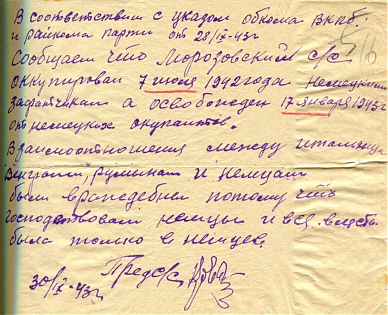 В соответствии с указом обкома ВКПб
и райкома партии от 28/IX-43г
Сообщаем что Морозовский с/с
оккупирован 7 июля 1942 года немецкими
захватчикам а освобожден 17 января 1943г
от немецких окупантов.
Взаимоотношения между итальянца
Венграми, румынам и немцам
были враждебны потому что
господствовали немцы и вся власть
была только в немцев.
30/IX-43г Предс/с